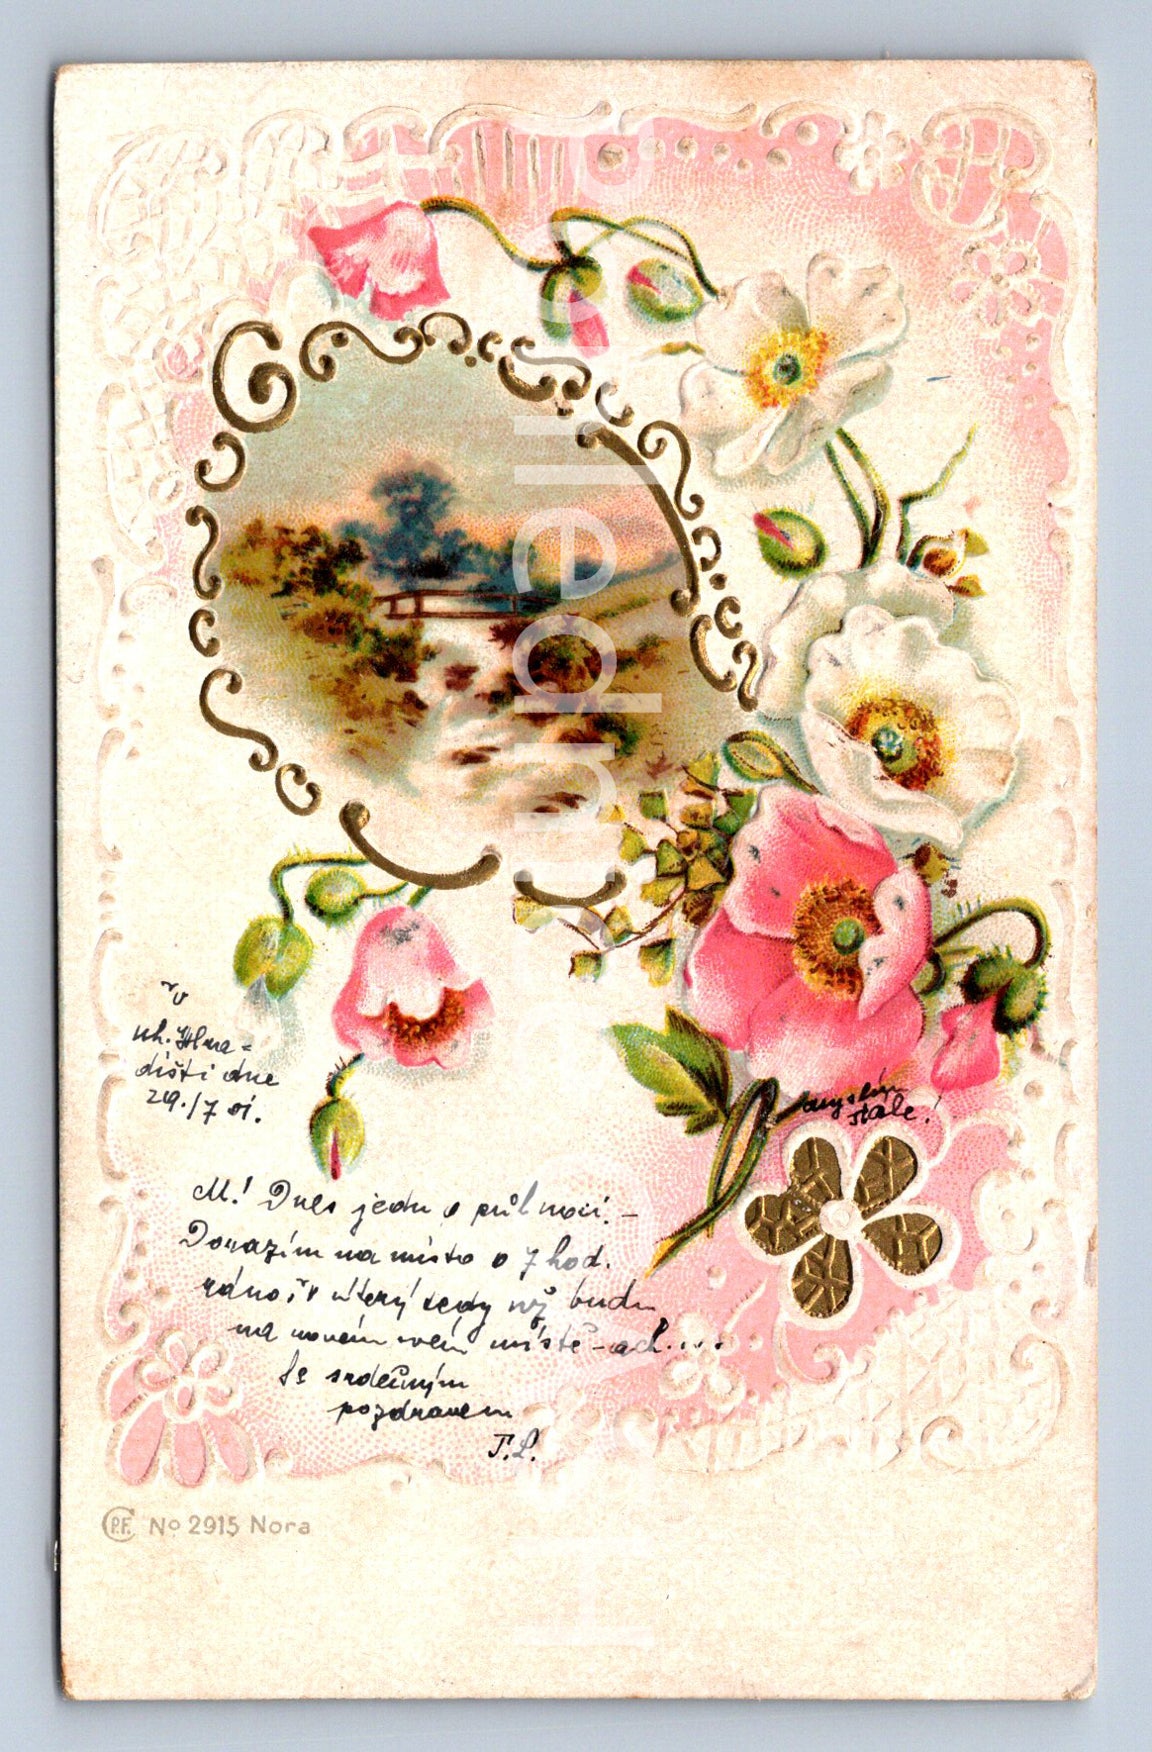 v
uh. Hra=
dišti dne
29./7 01.
myslím
stále!
M! Dnes jedu o půl noci. –
Dorazím na místo o 7 hod.
ráno, v úterý tedy už budu
na novém svém místě – ach....
Se srdečným
pozdravem
F.L.
P.F. No 2915 Nora